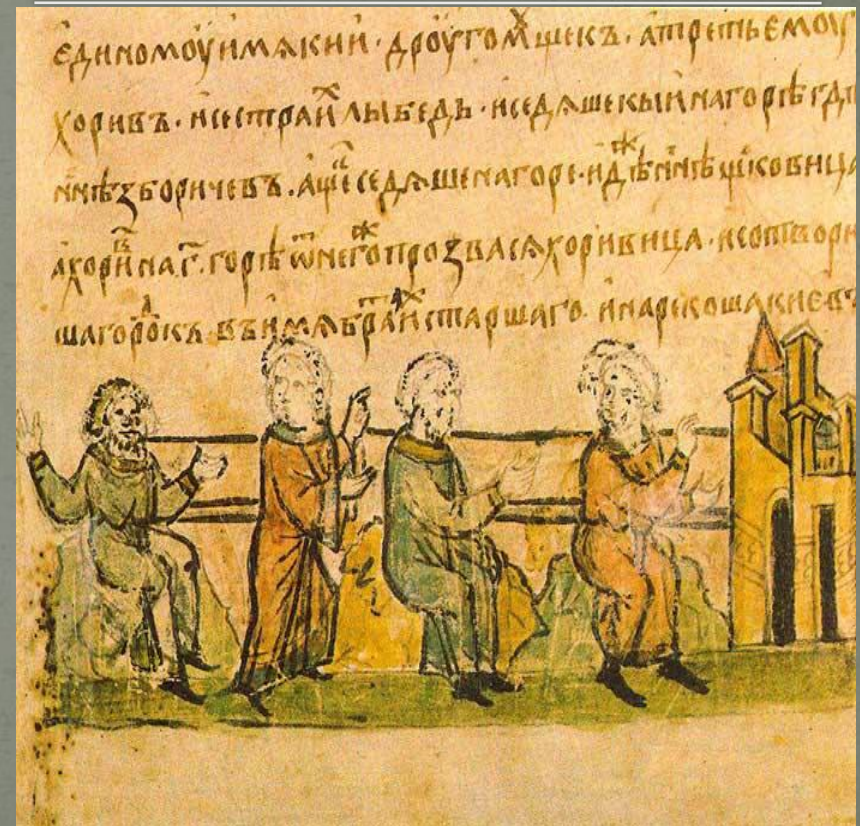 единомоу имѧ кии · дроугом щекъ · а третьемоу
хоривъ · и сестра их лыбедь · и седѧше кыи на горѣ гд
ннѣ зборичевъ . а щек седѧше на горе · идѣж ннѣ щековица
а хорив на г҃ · горѣ ѿ негож прозвасѧ хоривица · и сотвори
ша городокъ · въ имѧ брат их старшаго · и нарекоша киевъ